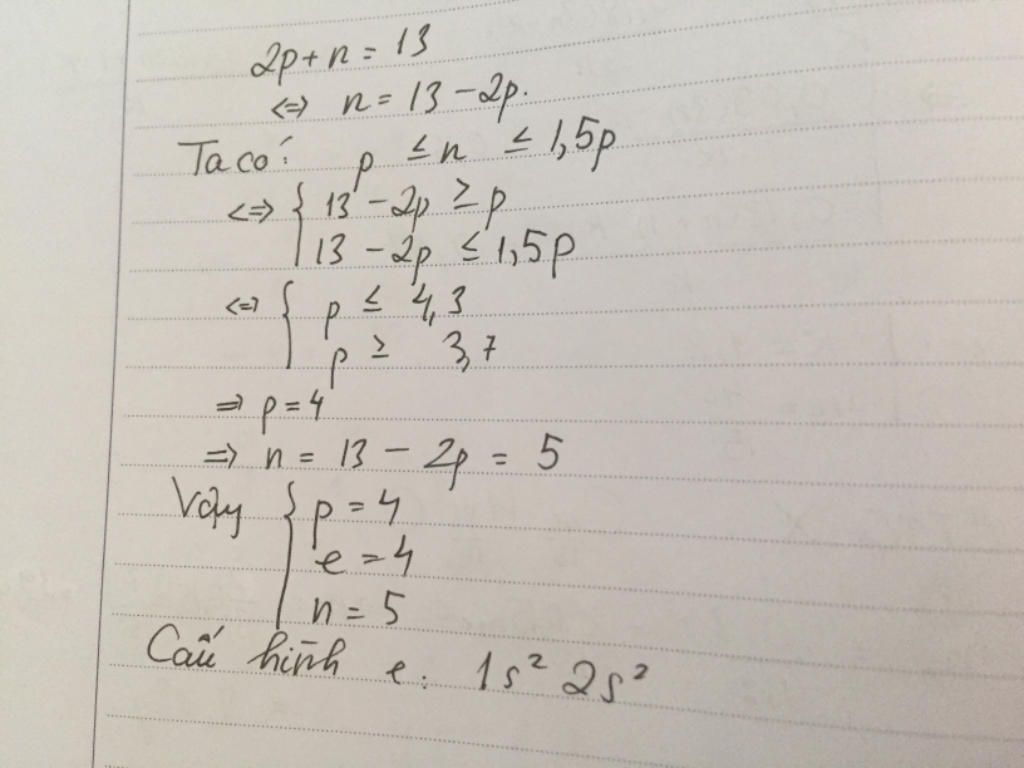 2p + n = 13
<=> n = 13 - 2p.
Ta có: p ≤ n ≤ 1,5p
<=> { 13 - 2p ≥ p
13 - 2p ≤ 1,5p
<=> { p ≤ 4,3
p ≥ 3,7
=> p = 4
=> n = 13 - 2p = 5
Vậy { p = 4
e = 4
n = 5
Cấu hình e: 1s² 2s²